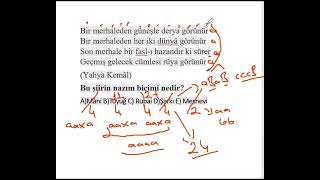 Bir merhaleden güneşle derya görünür a
Bir merhaleden her iki dünyâ görünür a
Son merhale bir fasl-ı hazandır ki sürer x
Geçmiş gelecek cümlesi rüya görünür a
(Yahya Kemâl)
Bu şiirin nazım biçimi nedir?
A)Mâni B)Tuyuğ C) Rubai D)Şarkı E) Mesnevi
aBaB cccB
4 4 4 4 2
aaxa aaxa aaxa aa
bb
aaaa
24